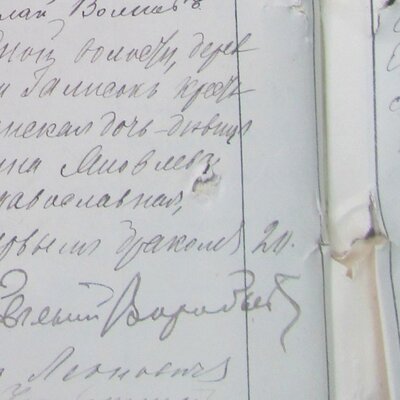 лай Волковъ
ной волости, дерев
ни Галисокъ крест
янская дочь-девица
нна Яковлева
равославная,
ервымъ бракомъ 20.
Евгений Воробьев
Леонович